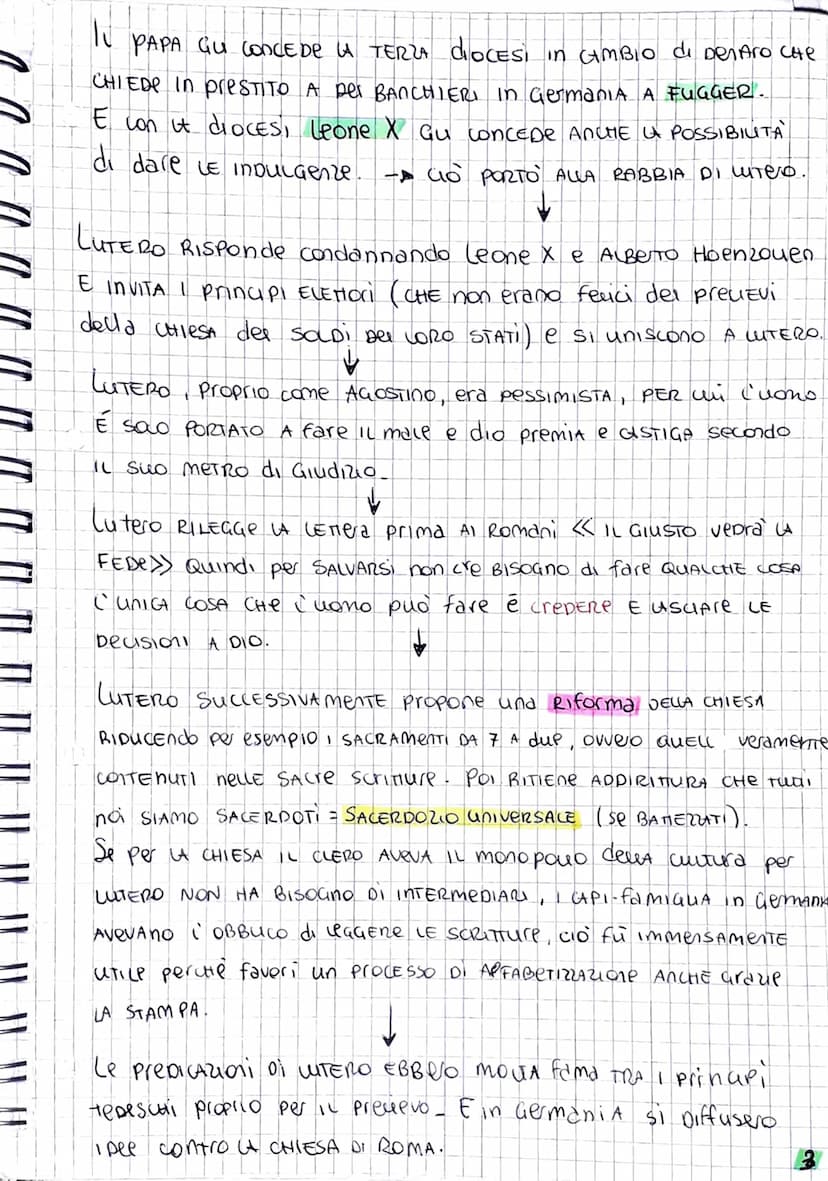 Il PAPA GLI CONCEDE LA TERZA diocesi in CAMBIO di DENARO CHE
CHIEDE in prESTITO A dei BANCHIERI in GermaniA A FUGGER.
E con LA diocesi, Leone X GLI CONCEDE ANCHE LA POSSIBILITÀ
di dare LE INDULGENZE. → CIÒ PORTÒ ALLA RABBIA DI LUTERO.
↓
LUTERO RISPONDE condannando Leone X e ALBERTO HOENZOLLEN
E INVITA I PRINCIPI ELETTORI (CHE non erano felici dei PRELIEVI
della CHIESA dei SOLDI DEI LORO STATI) e SI UNISCONO A LUTERO.
↓
LUTERO, proprio come AGOSTINO, era PESSIMISTA, PER CUI L'uomo
È SOLO PORTATO A fare IL MALE e dio premia e CASTIGA secondo
IL SUO METRO di GIUDIZIO_
↓
Lutero RILEGGE LA LETTERA prima AI Romani << IL GIUSTO vedrà LA
FEDE>> Quindi per SALVARSI non c'è BISOGNO di fare QUALCHE COSA
L'UNICA COSA CHE L'uomo può fare è CREDERE E LASCIARE LE
DECISIONI A DIO.
↓
LUTERO SUCCESSIVAMENTE PROPONE una Riforma DELLA CHIESA
RIDUCENDO per esempio I SACRAMENTI DA 7 A due, ovvero quELL veramente
CONTENUTI nelle SACRE SCRITTURE. POI RITIENE ADDIRITTURA CHE TUTTI
noi SIAMO SACERDOTI = SACERDOZIO UNIVERSALE (se BATTEZZATI).
Se per LA CHIESA IL CLERO AVEVA IL monopolio della cultura per
LUTERO NON HA BISOGNO DI INTERMEDIARI, I CAPI-famiglia in GERMANIA
AVEVANO L'OBBLICO di leGGERE LE SCRITTURE, ciò fù immensamente
utile perchè favorì un PROCESSO DI ALFABETIZZAZIONE ANCHE grazie
LA STAMPA.
↓
Le PREDICAZIONI DI LUTERO EBBERO MOLTA fama TRA I principi
tedeschi PROPRIO per IL PRELIEVO_ E in GermaniA si DIFFUSERO
IDEE contro LA CHIESA DI ROMA.
3